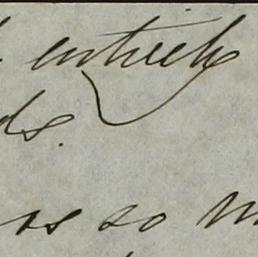 entirely
ds.
as so